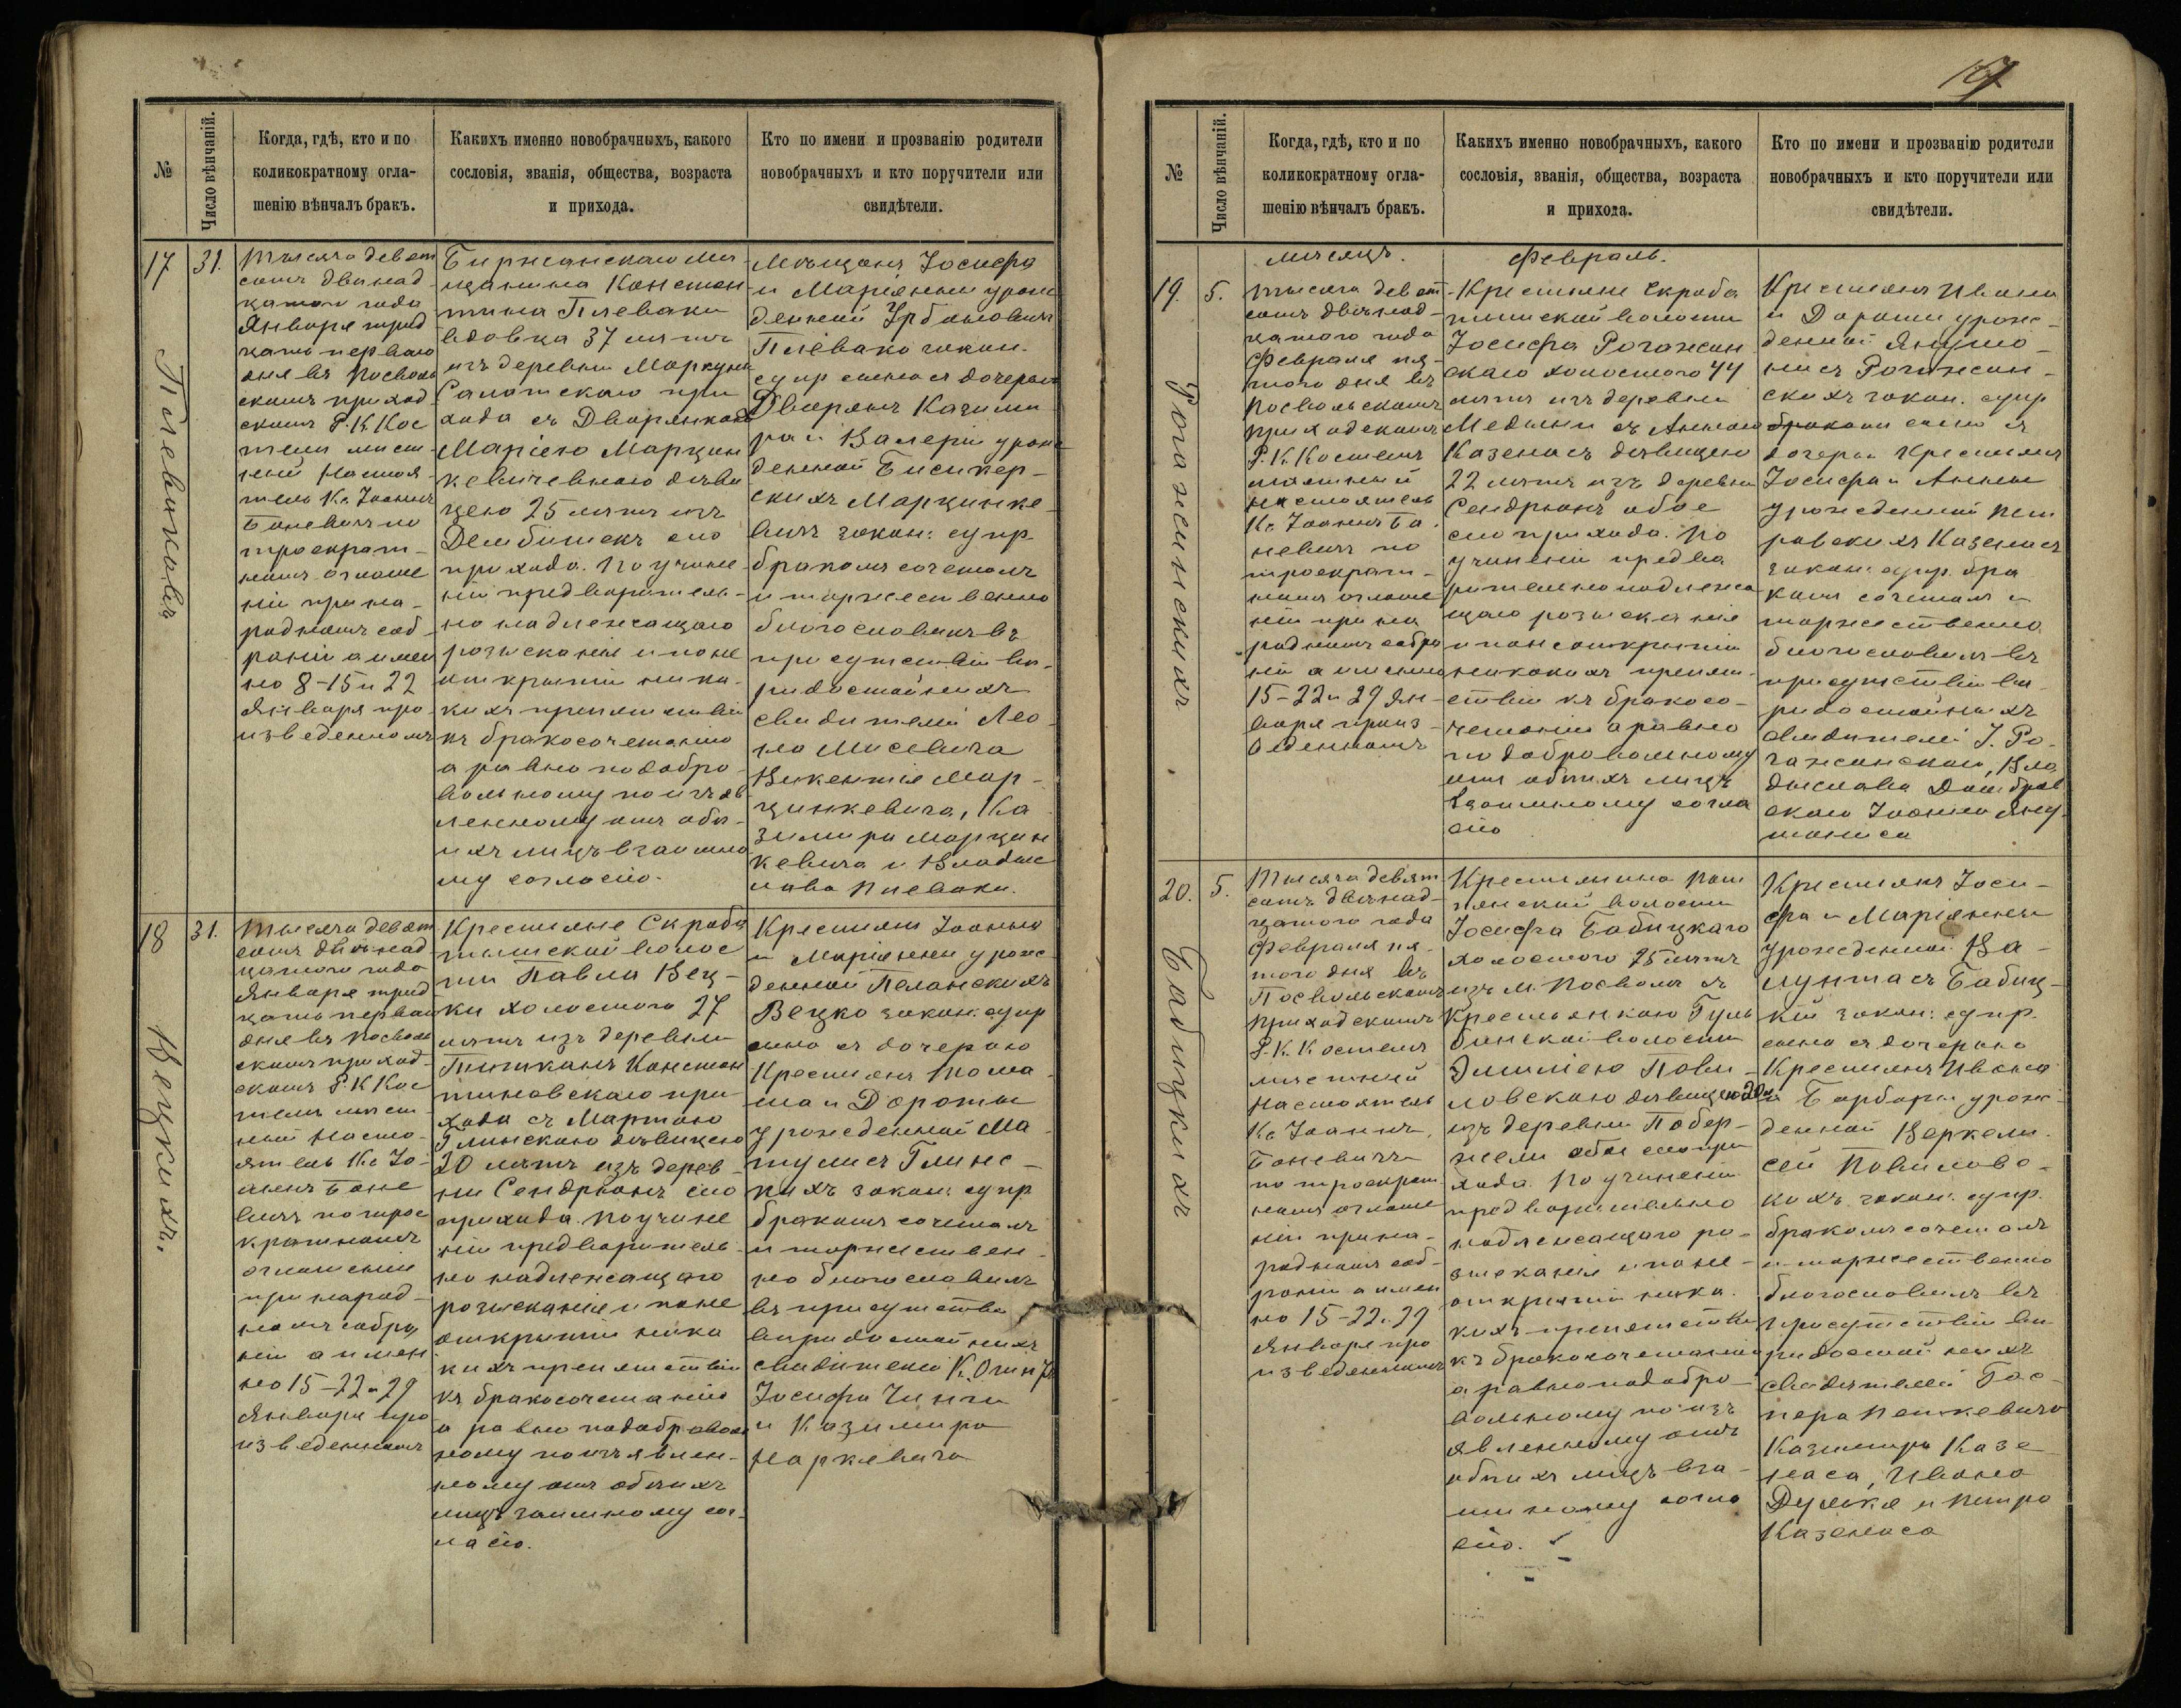 №
Число вѣнчаній.
Когда, гдѣ, кто и по
коликократному огла-
шенію вѣнчалъ бракъ.
Какихъ именно новобрачныхъ, какого
сословія, званія, общества, возраста
и прихода.
Кто по имени и прозванію родители
новобрачныхъ и кто поручители или
свидѣтели.
17
Плевиковъ
31.
Тысяча девят
сотъ двѣнад
цатаго года
Января трид
цать перваго
дня въ Посволь
скомъ приход
скомъ Р. К. Кос
телѣ мѣст
ный Настоя
тель Кс. Іоаннъ
Баневичъ по
троекрат-
номъ оглаше
ніи при на-
родномъ соб-
раніи а имен
но 8-15 и 22
Января про
изведенномъ
Биржанскаго мѣ
щанина Констан
тина Плеваки
вдовца 37 лѣтъ
изъ деревни
Салатскаго при
хода съ Дворянкою
Маріею Марцин
кевичевною дѣви
цею 25 лѣтъ изъ
Дембишекъ сего
прихода. По учине
ніи предваритель-
но надлежащаго
розысканія и по не
открытіи ника
кихъ препятствій
къ бракосочетанію
а равно по добро
вольному по изъяв
ленному отъ обѣ-
ихъ лицъ взаимно
му согласію.
Мѣщанъ Іосифа
и Маріянны урож
денной Урбановичъ
Плевако закон.
супр. сына съ дочерью
Дворянъ Казими
ра и Валеріи урож
денной Бисикер-
скихъ Марцинке
вичъ закон: супр.
бракомъ сочеталъ
и торжественно
благословилъ въ
присутствіи вѣ-
ридостойныхъ
свидѣтелей Лео
на Мисевича
Викентія Мар-
цинкевича, Ка
зимира Марцин
кевича и Влады
слава Плеваки.
18
Вецкихъ.
31.
Тысяча девят
сотъ двѣнад
цатаго года
Января трид
цать перваго
дня въ Посволь
скомъ приход
скомъ Р. К Кос
телѣ мѣст-
ный Насто-
ятель Кс Іо-
аннъ Бане
вичъ по трое
кратномъ
оглашеніи
при народ-
номъ собра
ніи а имен
но 15-22 и 29
Января про
изведенномъ
Крестьяне Скробо
тышской волос
ти Павла Вец-
ки холостого 27
лѣтъ изъ деревни
Констан
тиновскаго при
хода съ Мартою
Глинскою дѣвицею
20 лѣтъ изъ дерев-
ни Сендрюнъ сего
прихода. По учине
ніи предваритель-
но надлежащаго
розысканія и по не
открытіи ника
кихъ препятствій
къ бракосочетанію
а равно по доброволь
ному по изъявлен-
ному отъ обѣихъ
лицъ взаимному сог-
ласію.
Крестьянъ Іоанна
и Маріянны урож-
денной Пеланскихъ
Вецко закон: супр
сына съ дочерью
Крестьянъ Тома
ша и Дороты
урожденной Ма
тулисъ Глинс-
кихъ закон: супр
бракомъ сочеталъ
и торжествен-
но благословилъ
въ присутствіи
вѣридостойныхъ
свидѣтелей
Іосифа Чинги
и Казимира
Наркевича
167
№
Число вѣнчаній.
Когда, гдѣ, кто и по
коликократному огла-
шенію вѣнчалъ бракъ.
Какихъ именно новобрачныхъ, какого
сословія, званія, общества, возраста
и прихода.
Кто по имени и прозванію родители
новобрачныхъ и кто поручители или
свидѣтели.
мѣсяцъ. Февраль.
19.
Рогажинскихъ
5.
Тысяча девят
сотъ двѣнад-
цатаго года
Февраля пя-
таго дня въ
Посвольскомъ
приходскомъ
Р. К. Костелѣ
мѣстный
настоятель
Кс Іоаннъ Ба-
невичъ по
троекрат-
номъ оглаше
ніи при на
родномъ собра
ніи а именно
15-22 и 29 Ян-
варя произ-
веденномъ
Крестьяне Скроба
тишской волости
Іосифа Рогажин
скаго холостого 44
лѣтъ изъ деревни
Медыни съ Анною
Казенасъ дѣвицею
22 лѣтъ изъ деревни
Сендрюнъ обое
сего прихода. По
учиненіи предва
рительно надлежа
щаго розысканія
и по неоткрытіи
никакихъ препят
ствій къ бракосо-
четанію а равно
по добровольному
отъ обѣихъ лицъ
взаимному согла
сію
Крестьянъ Ивана
и Дороты урож-
денной Янушо-
нисъ Рогажин-
скихъ закон. супр
бракомъ сына съ
дочерью Крестьянъ
Іосифа и Анны
урожденной Пет
ровскихъ Казенасъ
закон: супр. бра
комъ сочеталъ и
торжественно
благословилъ въ
присутствіи вѣ
ридостойныхъ
свидѣтелей І. Ро-
гажинскаго, Вла
дыслава Домбров
скаго Іоанна Яну
шониса
20.
Бабицкихъ
5.
Тысяча девят
сотъ двѣнад-
цатаго года
Февраля пя-
таго дня въ
Посвольскомъ
приходскомъ
Р. К. Костелѣ
мѣстный
Настоятель
Кс Іоаннъ
Баневичъ
по троекрат
номъ оглаше
ніи при на-
родномъ соб-
раніи а имен
но 15-22 и 29
Января про
изведенномъ
Крестьянина
волости
Іосифа Бабицкаго
холостого 25 лѣтъ
изъ м. Посволя съ
Крестьянкою Гуль
бинской волости
Эмиліею Пови-
ловскою дѣвицею
изъ деревни Побер-
жели обое сего при
хода. По учиненіи
предварительно
надлежащаго ро-
зысканія и по не-
открытіи ника-
кихъ препятствій
къ бракосочетанію
а равно по добро
вольному по изъ
явленному отъ
обѣихъ лицъ вза-
имному согла
сію.
Крестьянъ Іоси-
фа и Маріянны
урожденной Ва-
лунтасъ Бабиц-
кій закон: супр.
сына съ дочерью
Крестьянъ Ивана
и Барбары урож-
денной
Повиловс-
кихъ закон: супр.
бракомъ сочеталъ
и торжественно
благословилъ въ
присутствіи вѣ
ридостойныхъ
свидѣтелей Гас-
пера Петкевича
Казимира Казе
наса, Ивана
и Петра
Казенаса